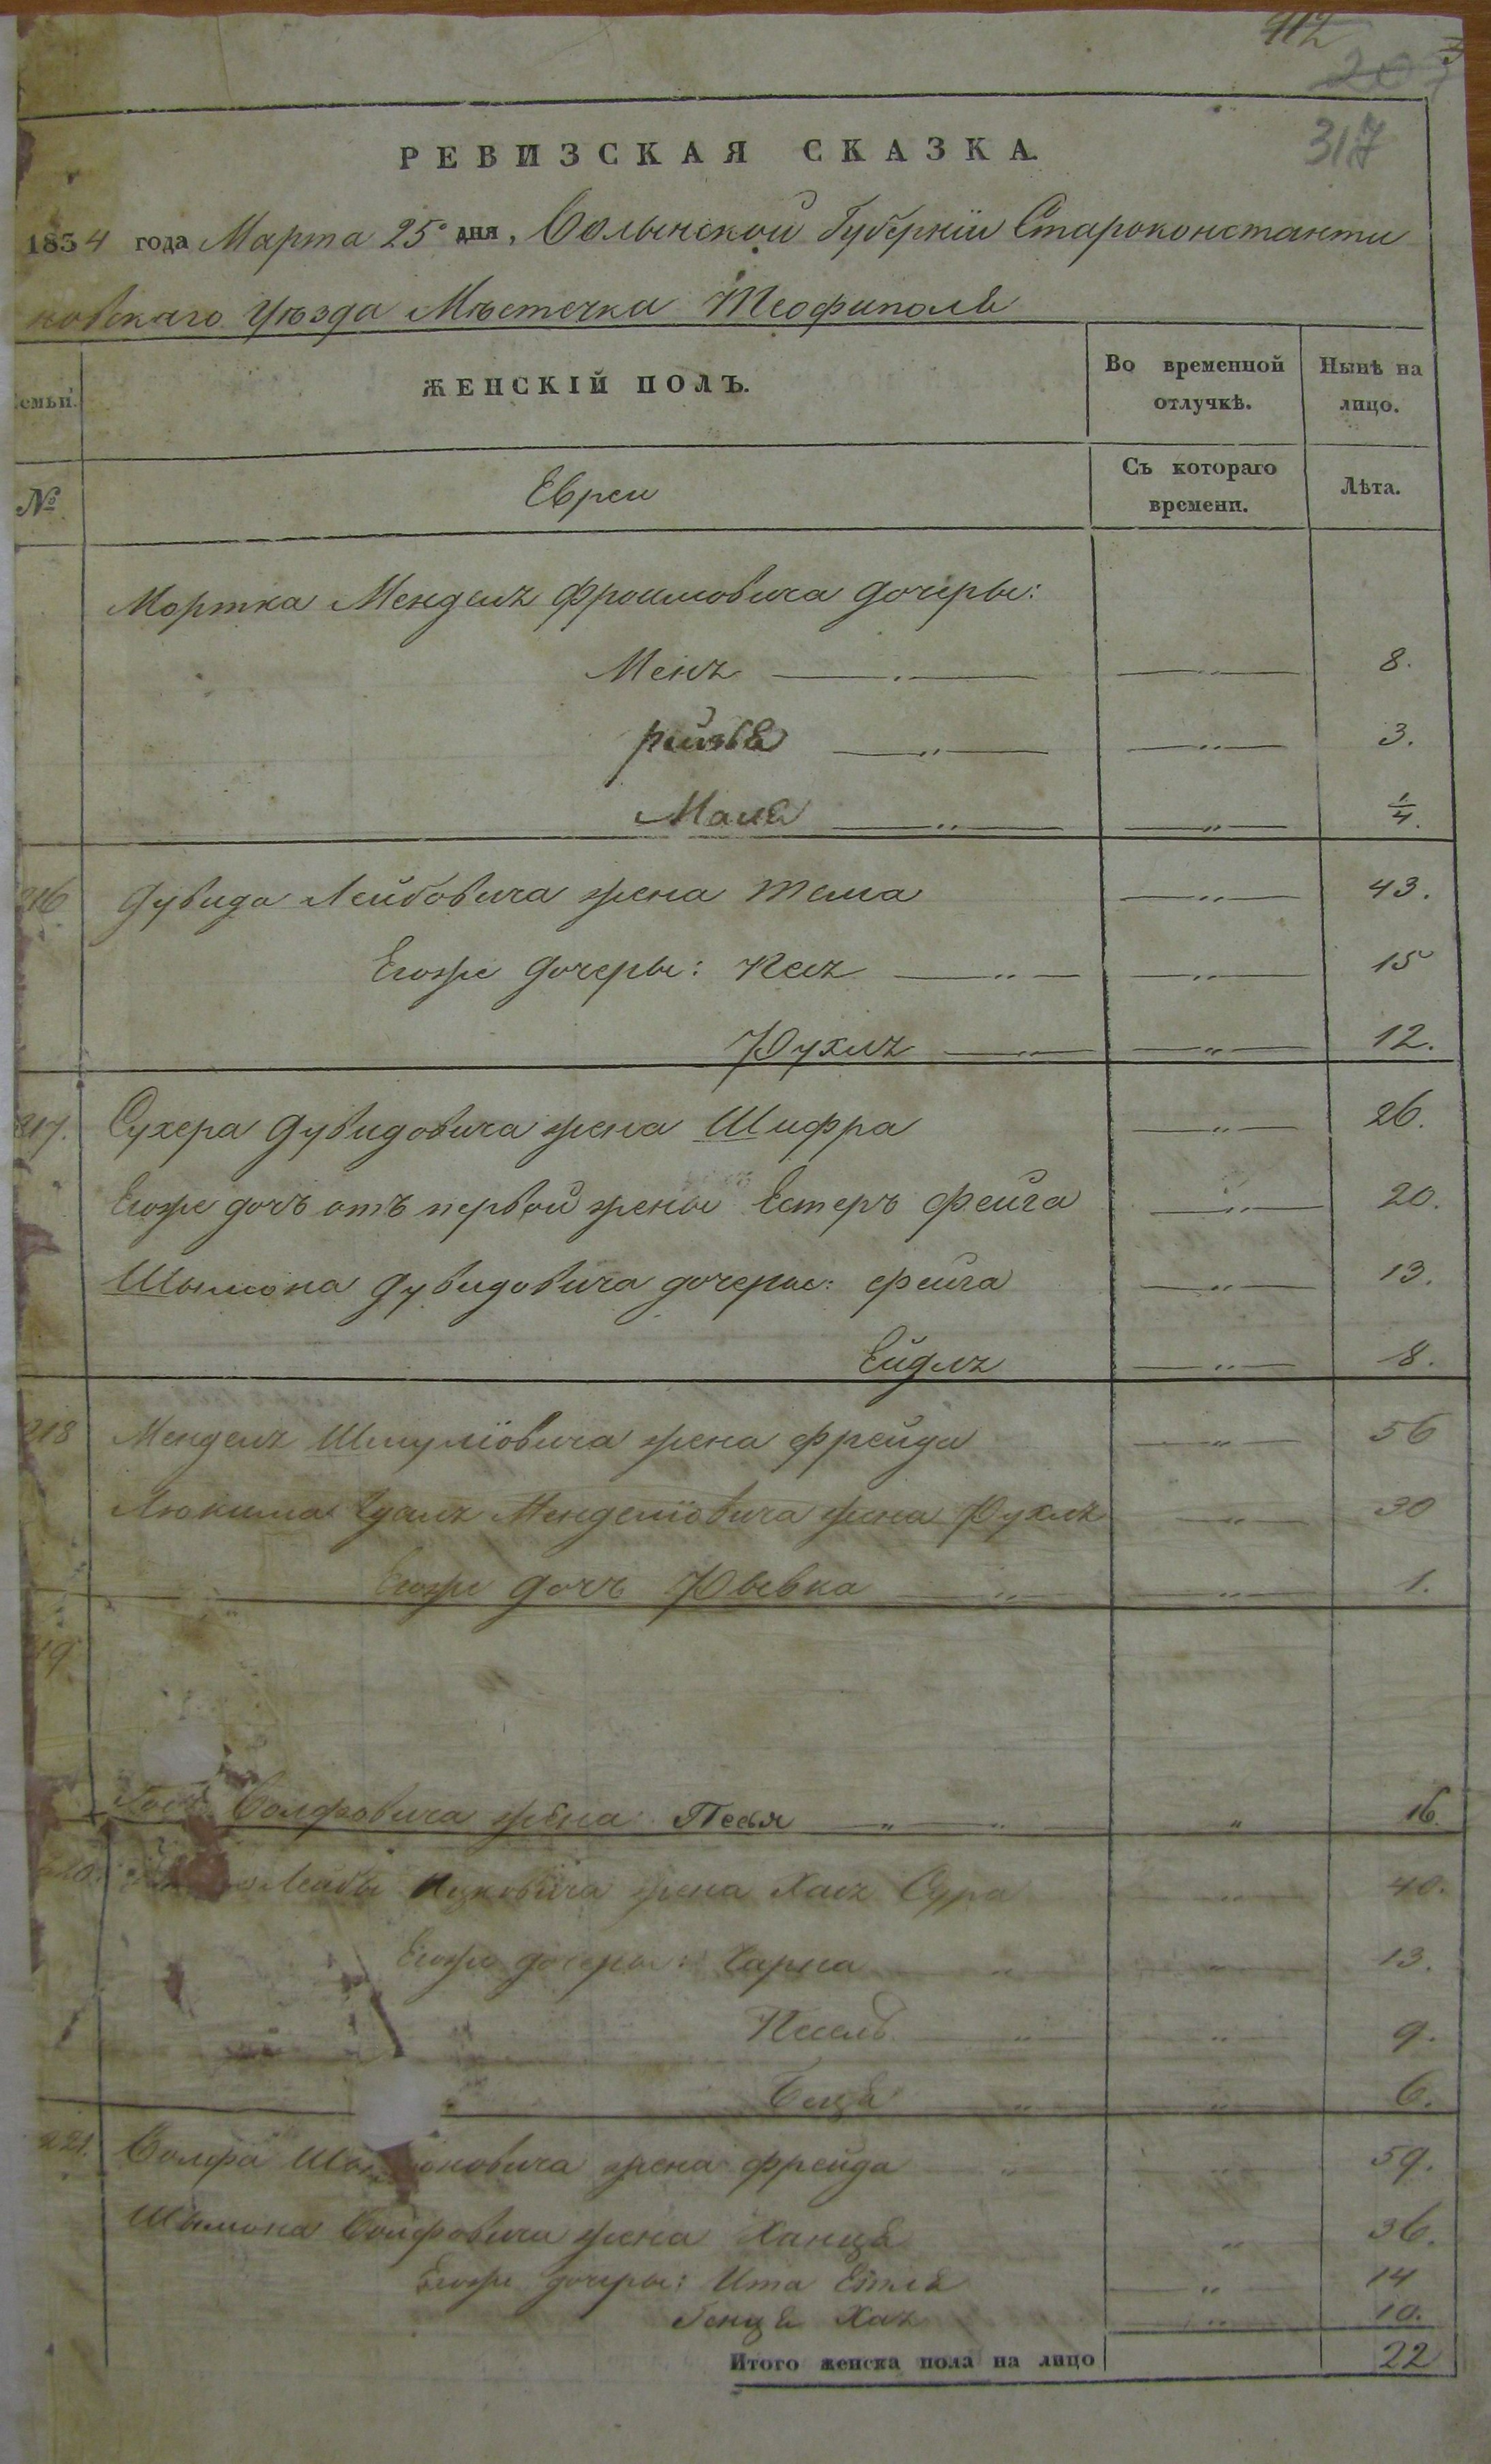 912
207
317
РЕВИЗСКАЯ СКАЗКА.
1834 года Марта 25 дня, Волынской Губерніи Староконстанти
новскаго уѣзда Мѣстечка Теофиполя
Семьи. ЖЕНСКІЙ ПОЛЪ. Во временной отлучкѣ. Нынѣ на лицо.
№ Евреи Съ котораго времени. Лѣта.
Мортка Мендель Фроимовича дочеры:
Меня 8.
Рейзя 3.
Маля 1/4.
216 Дувида Лейбовича жена Тема 43.
Егоже дочеры: Кея 15
Рухля 12.
217. Сухера Дувидовича жена Шифра 26.
Егоже дочъ отъ первой жены Естеръ Фейга 20.
Шымона Дувидовича дочеры: Фейга 13.
Ейдля 8.
218 Менделя Шмуліовича жена Фрейда 56
Люкима Менделіовича жена Рухля 30
Егоже дочъ Ривка 1.
19
Волфовича жена Песя 16.
220. Лейбы Ицковича жена Хая Сура 40.
Егоже дочеры: Чарна 13.
Песель 9.
6.
221. Волфа Шымоновича жена Фрейда 59.
Шымона Волфовича жена Ханця 36.
Егоже дочеры: Ита Етля 14
Генця Хая 10.
Итого женска пола на лицо 22